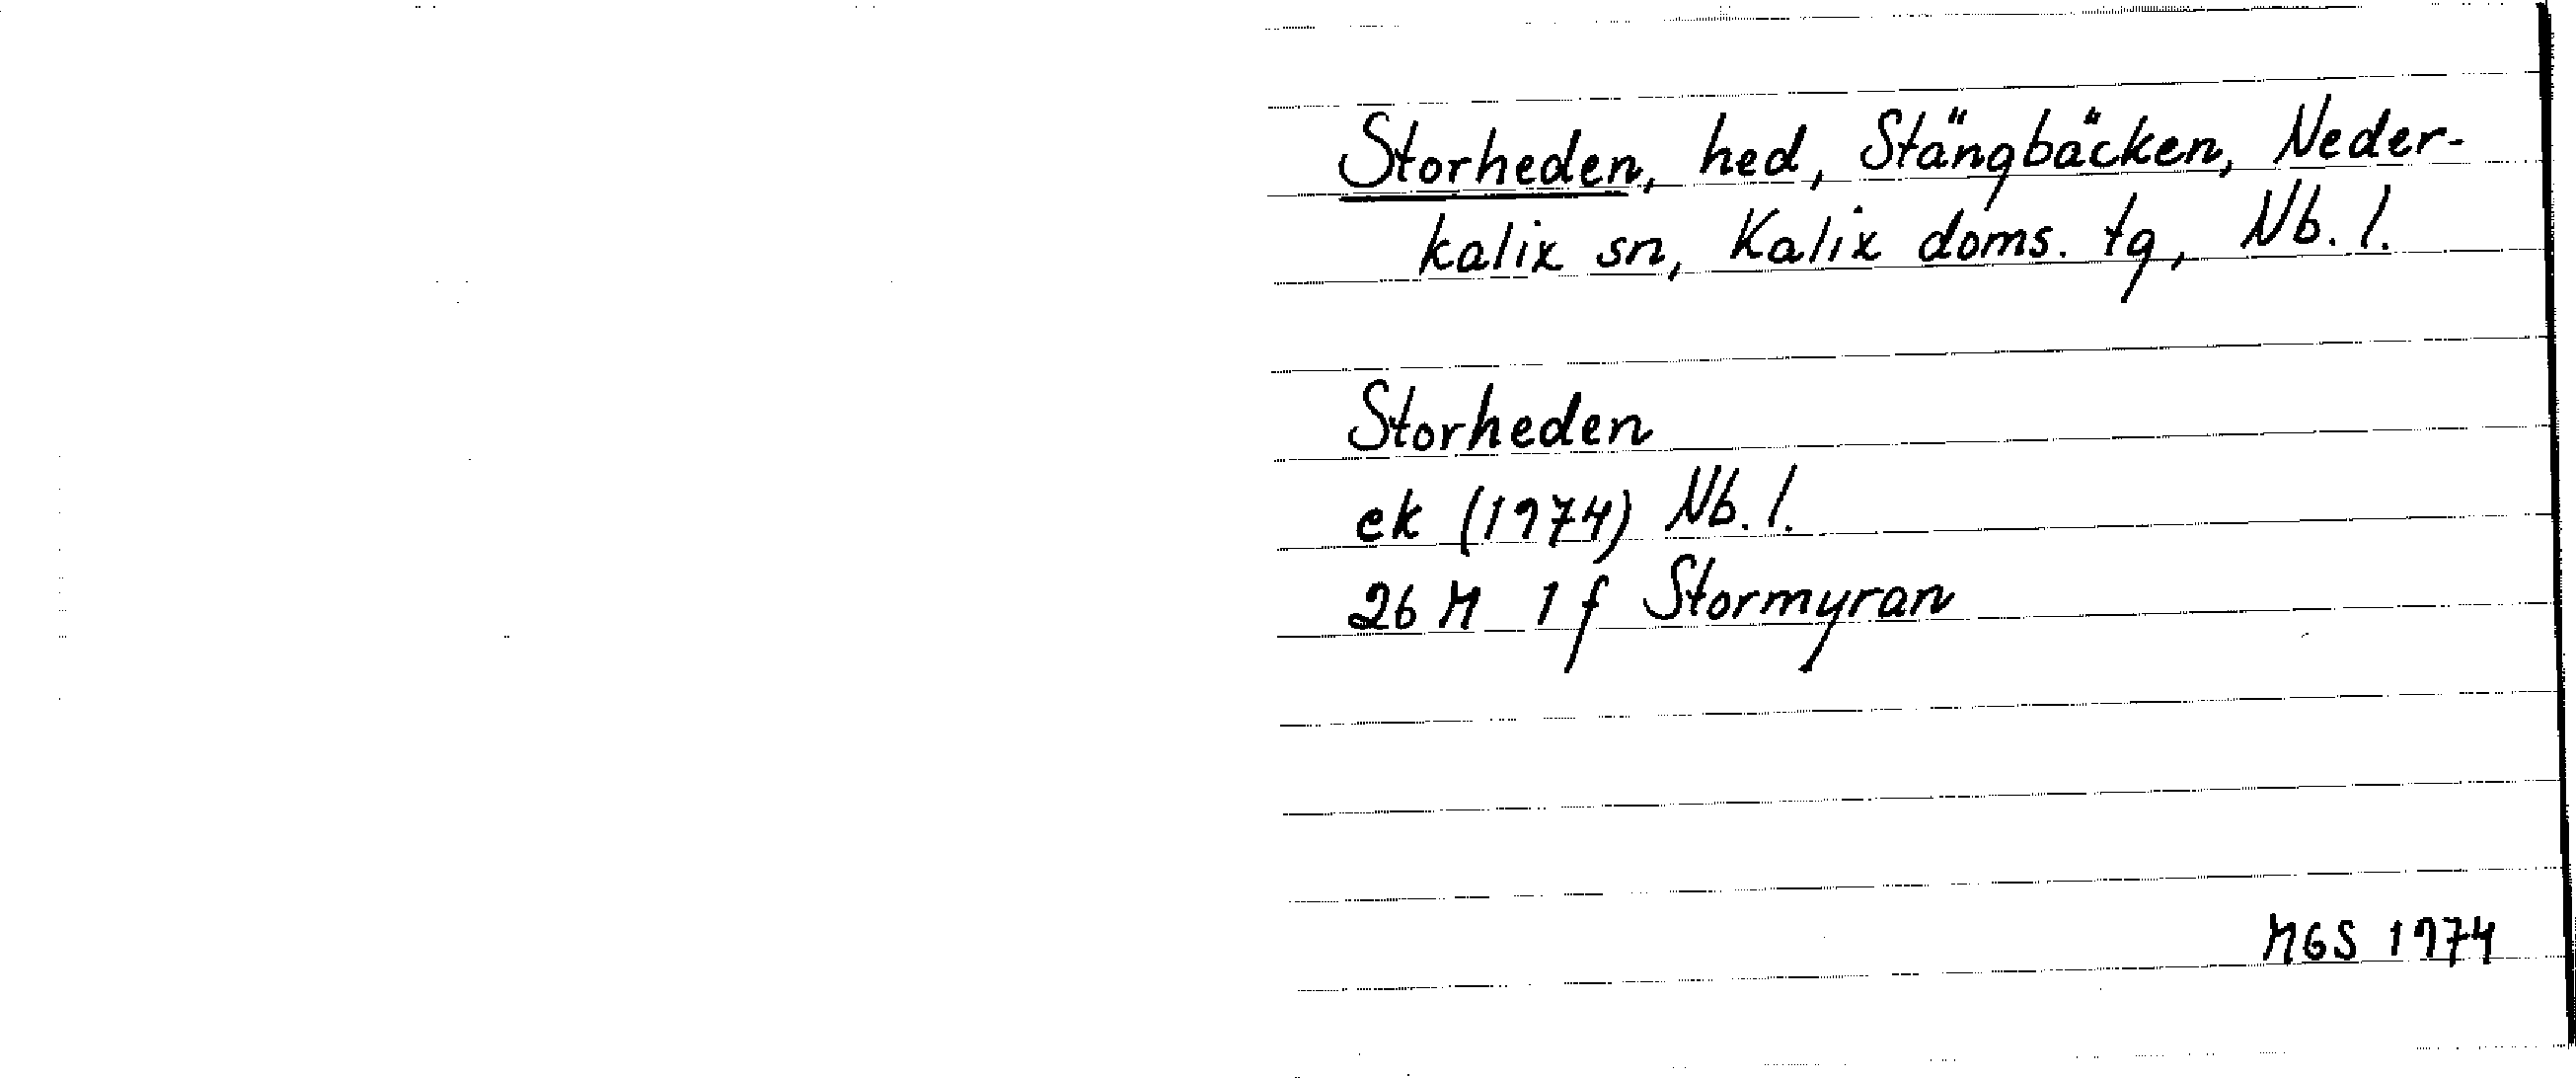 Storheden, hed, Stängbäcken, Neder-
kalix sn, Kalix doms. tg, Nb. l.
Storheden
ek (1974) Nb. l.
26 M 1 f Stormyran
MGS 1974